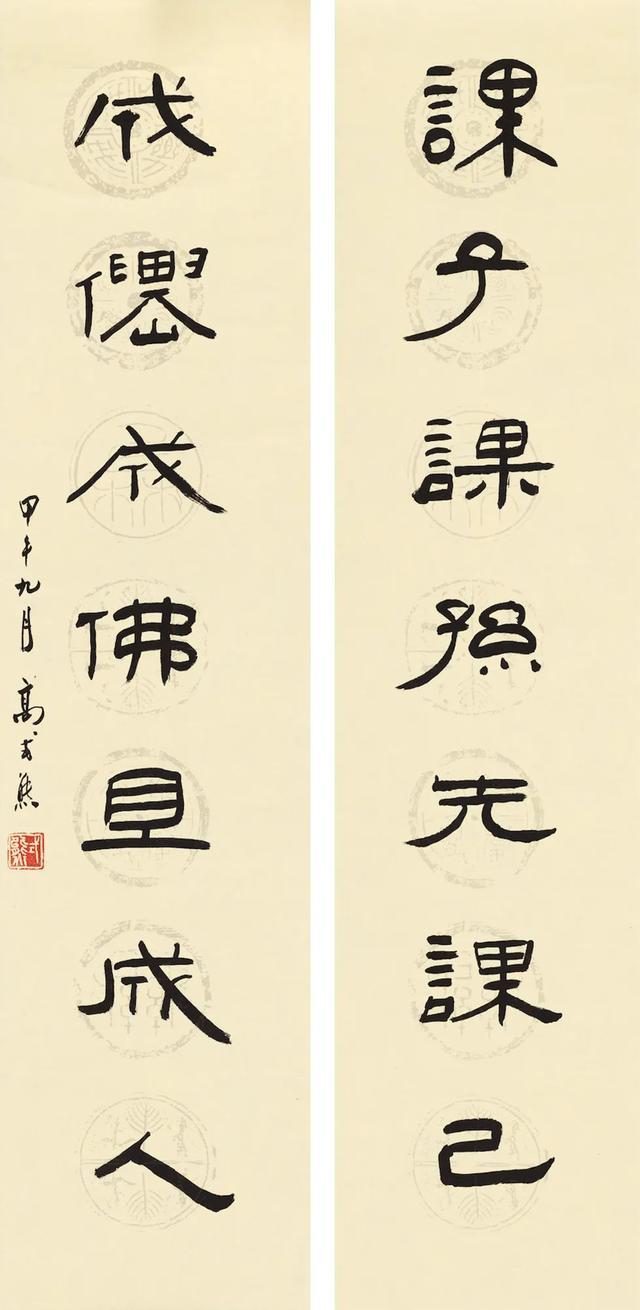 課子課孫先課己
成僊成佛且成人
甲午九月 高式熊
式熊